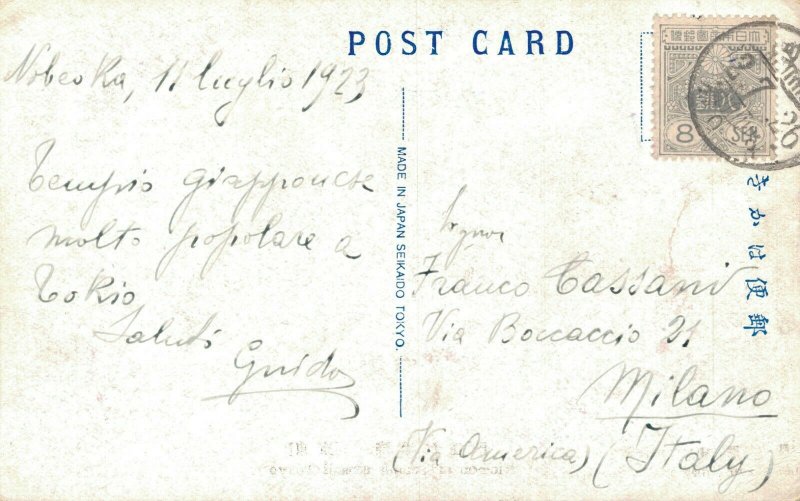 POST CARD
Nobeoka, 11 luglio 1923
Tempio giapponese
molto popolare a
Tokio
Saluti
Guido
MADE IN JAPAN SEIKAIDO TOKYO.
大日本帝國郵便
8 SEN
きかは便郵
Signor
Franco Cassani
Via Boccaccio 21
Milano
(Via America) (Italy)